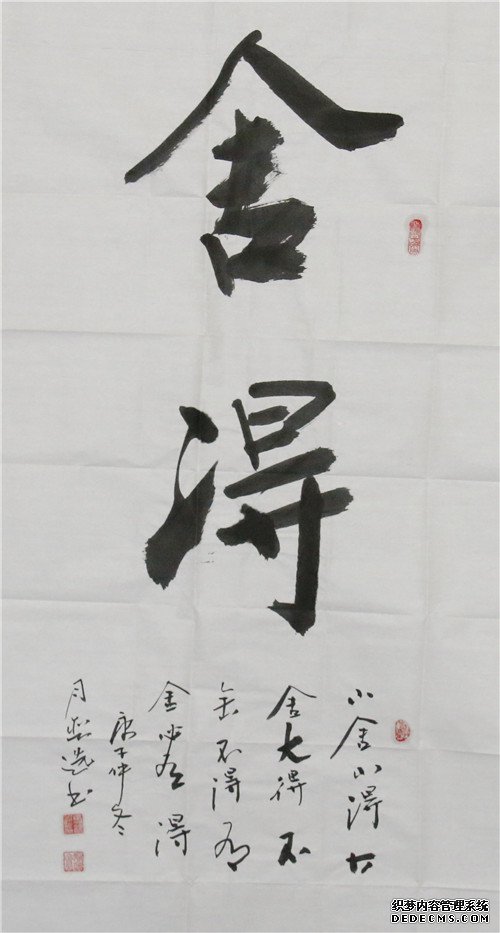 舍得
小舍小得大
舍大得不
舍不得有
舍必有得
庚子仲冬
月选书
织梦内容管理系统
DEDECMS.COM